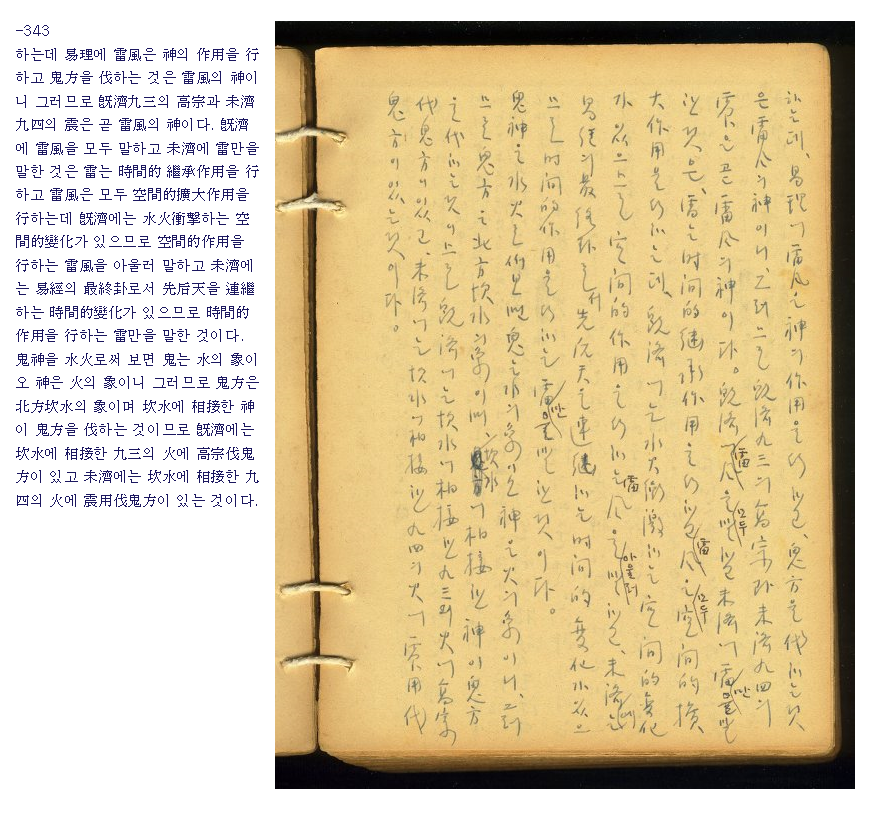 -343
하는데 易理에 雷風은 神의 作用을 行
하고 鬼方을 伐하는 것은 雷風의 神이
니 그러므로 旣濟九三의 高宗과 未濟
九四의 震은 곧 雷風의 神이다. 旣濟
에 雷風을 모두 말하고 未濟에 雷만을
말한 것은 雷는 時間的 繼承作用을 行
하고 雷風은 모두 空間的擴大作用을
行하는데 旣濟에는 水火衝擊하는 空
間的變化가 있으므로 空間的作用을
行하는 雷風을 아울러 말하고 未濟에
는 易經의 最終卦로서 先后天을 連繼
하는 時間的變化가 있으므로 時間的
作用을 行하는 雷만을 말한 것이다.
鬼神을 水火로써 보면 鬼는 水의 象이
오 神은 火의 象이니 그러므로 鬼方은
北方坎水의 象이며 坎水에 相接한 神
이 鬼方을 伐하는 것이므로 旣濟에는
坎水에 相接한 九三의 火에 高宗伐鬼
方이 있고 未濟에는 坎水에 相接한 九
四의 火에 震用伐鬼方이 있는 것이다.
하는데、易理에 雷風은 神의 作用을 行하고、鬼方을 伐하는 것
은 雷風의 神이니 그러므로 旣濟九三의 高宗과 未濟九四의
震은 곧 雷風의 神이다。旣濟에 雷風을 모두 말하고 未濟에 雷만을 말
한 것은、雷는 时间的 継承作用을 行하고 雷風은 모두 空间的 擴
大作用을 行하는데、旣濟에는 水火衝激하는 空间的 變化
가 있으므로 空间的 作用을 行하는 雷風을 아울러 말하고、未濟에는
易經의 最終卦로서 先后天을 連継하는 时间的 變化가 있으
므로 时间的 作用을 行하는 雷만을 말한 것이다。
鬼神을 水火로써 보면 鬼는 水의 象이오 神은 火의 象이니、그러
므로 鬼方은 北方坎水의 象이며 坎水에 相接한 神이 鬼方
을 伐하는 것이므로 旣濟에는 坎水에 相接한 九三의 火에 高宗
伐鬼方이 있고、未濟에는 坎水에 相接한 九四의 火에 震用伐
鬼方이 있는 것이다。